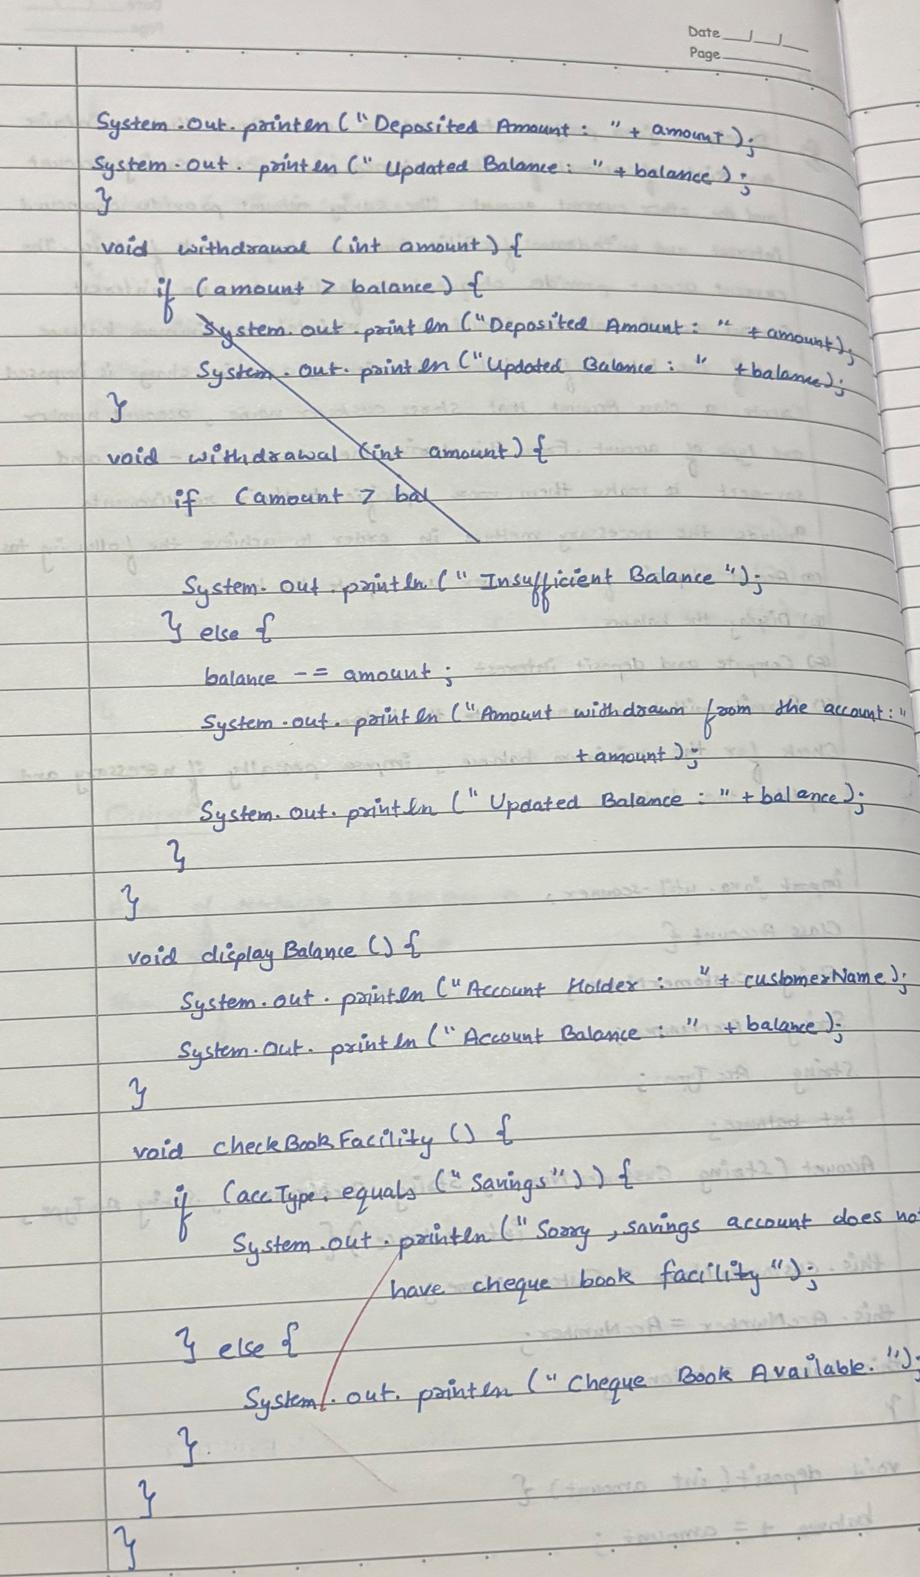 Date
Page
System.out.println ("Deposited Amount : " + amount);
System.out.println (" Updated Balance : " + balance);
}
void withdrawal (int amount) {
if (amount > balance) {
System.out.println ("Deposited Amount : " + amount);
System.out.println ("Updated Balance : " + balance);
}
void withdrawal (int amount) {
if (amount > bal
System.out.println (" Insufficient Balance ");
} else {
balance -= amount ;
System.out.println ("Amount withdrawn from the account:"
+ amount );
System.out.println (" Updated Balance : " + balance);
}
}
void displayBalance () {
System.out.println ("Account Holder : " + customerName);
System.out.println (" Account Balance : " + balance);
}
void checkBookFacility () {
if (accType.equals ("Savings")) {
System.out.println (" Sorry , savings account does not
have cheque book facility ");
} else {
System.out.println (" Cheque Book Available. ");
}
}
}